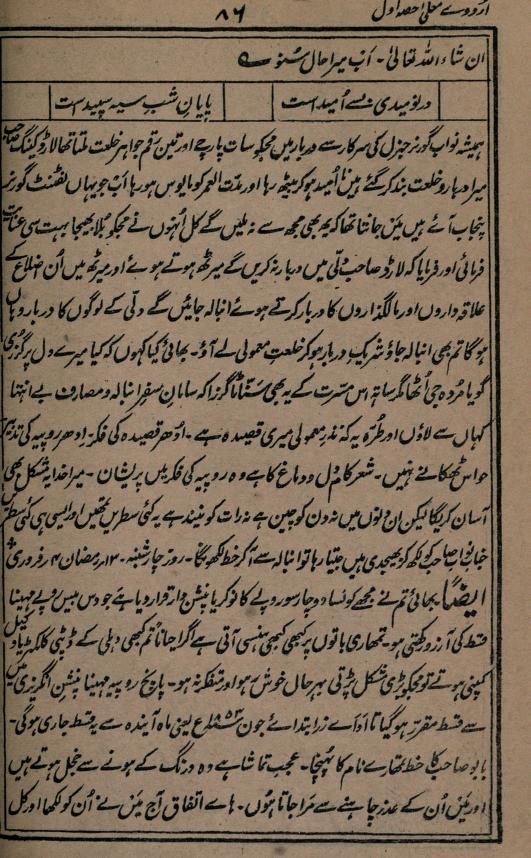 اردوے معلیٰ حصہ اول
۸۶
ان شاء اللہ تعالیٰ۔ اب میرا حال سُنو ؎
در نومیدی بسے اُمید است
پایانِ شبِ سیہ سپید است
ہمیشہ نواب گورنر جنرل کی سرکار سے دربار میں مجکو سات پارچے اور تین رقم جواہر خلعت ملتا تھا لارڈ کیننگ صاحب
میرا دربار و خلعت بند کر گئے ہیں نا اُمید ہو کر بیٹھ رہا اور مدت العمر کو مایوس ہو رہا اب جو یہاں لفٹنٹ گورنر
پنجاب آئے ہیں میں جانتا تھا کہ یہ بھی مجھ سے نہ ملیں گے کل اُنہوں نے مجکو بُلا بھیجا بہت سی عنایت
فرمائی اور فرمایا کہ لارڈ صاحب دلّی میں دربار نہ کریں گے میرٹھ ہوتے ہوئے اور میرٹھ میں اُن ضلاع کے
علاقہ داروں اور مالگذاروں کا دربار کرتے ہوئے انبالہ جائیں گے دلّی کے لوگوں کا دربار وہاں
ہو گا تم بھی انبالہ جاؤ شریک دربار ہو کر خلعت معمولی لے آؤ۔ بھائی کیا کہوں کہ کیا میرے دل پر گزری
گویا مُردہ جی اُٹھا مگر ساتھ اس مسرت کے یہ بھی سناٹا گزرا کہ سامان سفر انبالہ و مصارف بے انتہا
کہاں سے لاؤں اور طُرّہ یہ کہ نذر معمولی میری قصیدہ ہے۔ اُدھر قصیدہ کی فکر اِدھر روپیہ کی تدبیر
حواس ٹھکانے نہیں۔ شعر کام دل و دماغ کا ہے وہ روپیہ کی فکر میں پریشان۔ میرا خدا یہ مشکل بھی
آسان کریگا لیکن ان دنوں میں نہ دن کو چین ہے نہ رات کو نیند ہے یہ کئی سطریں تمھیں اور ایسی ہی کئی سطریں
جناب نواب صاحب کو لکھ کر بھیجدی ہیں جیتا رہا تو انبالہ سے آکر خط لکھوں گا۔ روز چار شنبہ۔ ۱۳ رمضان ۴ فروری
ایضاً بھائی تم نے مجھے کونسا دو چار سو روپے کا نوکر یا پنشن دار قرار دیا ہے جو دس بیس روپے مہینا
قسط کی آرزو رکھتے ہو۔ تمھاری باتوں پر کبھی کبھی ہنسی آتی ہے اگر احیاناً تم کبھی دہلی کے ڈپٹی کلکٹر یا وکیل
کمپنی ہوتے تو مجکو بڑی مشکل پڑتی بہرحال خوش رہو اور متفکر نہ ہو۔ پانچ روپیہ مہینا پنشن انگریزی میں
سے قسط مقرر ہو گیا تا ادائے زر ابتدائے جون ۱۸۵۳ع یعنی ماہ آیندہ سے یہ قسط جاری ہوگی۔
بابو صاحب کا خط تمھارے نام کا پہنچا۔ عجب تماشا ہے وہ درنگ کے ہونے سے خجل ہوتے ہیں
اور میں اُن کے عذر چاہنے سے مرا جاتا ہوں۔ ہاے اتفاق آج میں نے اُن کو لکھا اور کل